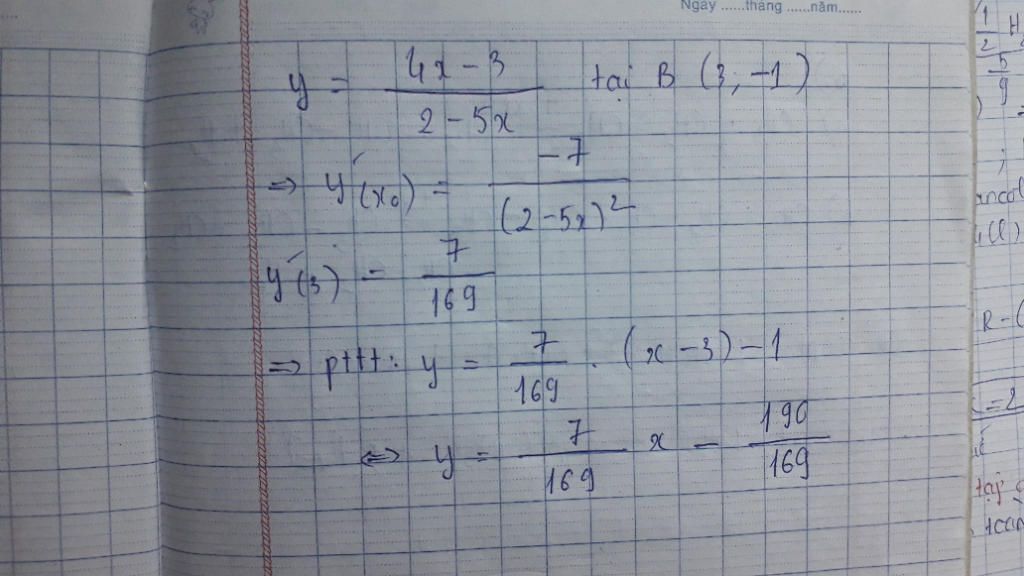 Ngày ......tháng ......năm......
y = (4x - 3)/(2 - 5x) tại B (3; -1)
=> y'(x₀) = -7/(2 - 5x)²
y'(3) = 7/169
=> pttt: y = 7/169 . (x - 3) - 1
<=> y = 7/169 x - 190/169
1/2 H
5/9
R - (
= 2
tại